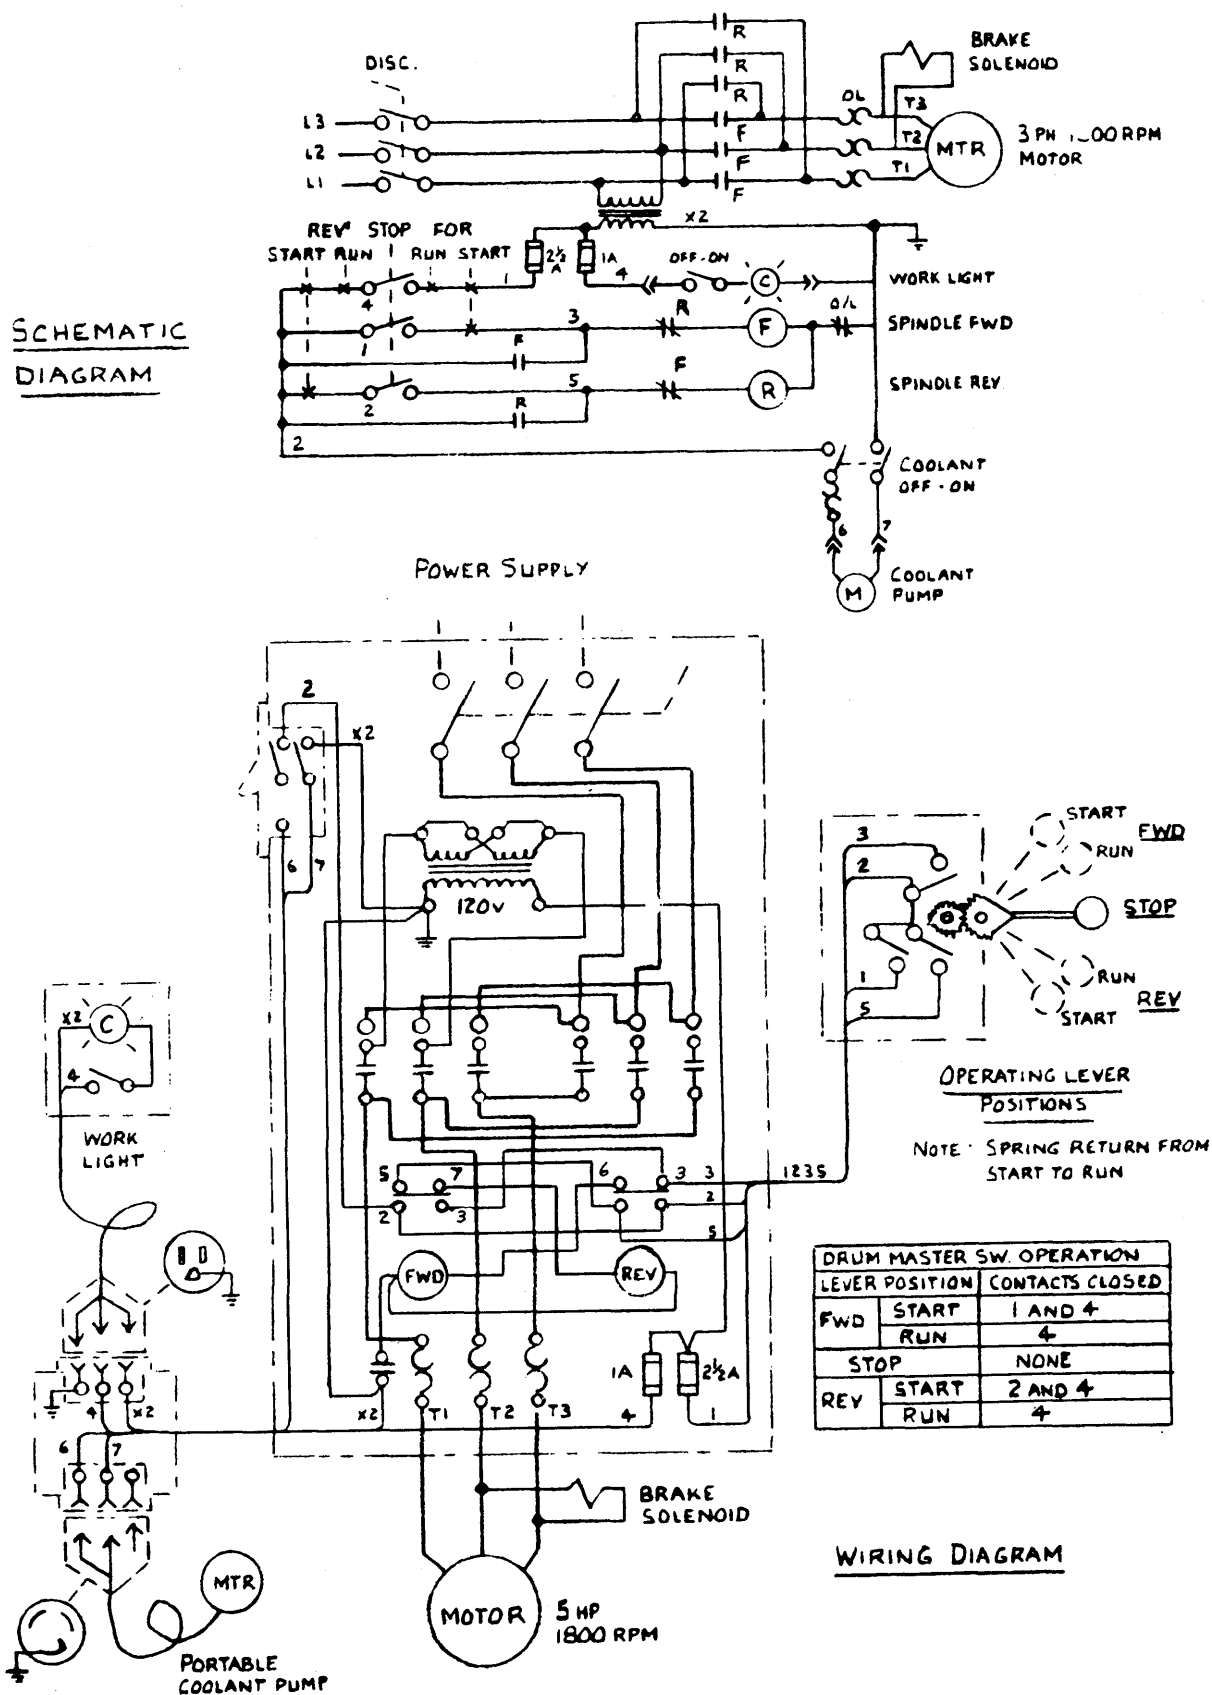 BRAKE
SOLENOID
DISC.
R
R
R
OL
L3
F
T3
L2
F
T2
L1
F
T1
MTR
3 PH 1_00 RPM
MOTOR
X2
REV STOP FOR
START RUN RUN START
1
2½
A
1A
4
OFF-ON
C
WORK LIGHT
4
SCHEMATIC
DIAGRAM
1
3
R
F
O/L
SPINDLE FWD
F
2
5
F
R
SPINDLE REV.
R
2
COOLANT
OFF-ON
6
7
M
COOLANT
PUMP
POWER SUPPLY
2
X2
6
7
120V
3
2
1
5
START
FWD
RUN
STOP
RUN
REV
START
OPERATING LEVER
POSITIONS
NOTE: SPRING RETURN FROM
START TO RUN
X2
C
4
WORK
LIGHT
5
7
6
3
3
1235
2
3
2
5
FWD
REV
1A
2½A
X2
T1
T2
T3
4
1
DRUM MASTER SW. OPERATION
LEVER POSITION CONTACTS CLOSED
FWD START 1 AND 4
RUN 4
STOP NONE
REV START 2 AND 4
RUN 4
4
X2
6
7
BRAKE
SOLENOID
WIRING DIAGRAM
MTR
MOTOR
5 HP
1800 RPM
PORTABLE
COOLANT PUMP